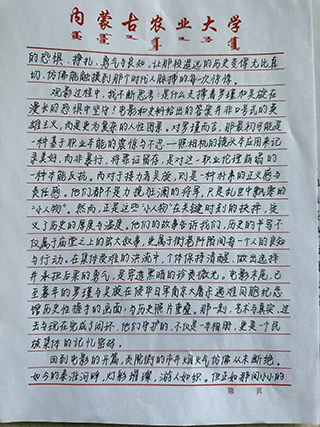 内蒙古农业大学
的恐惧、挣扎、勇气与良知，让那段遥远的历史变得无比真
切，仿佛能触摸到那个时代人脉搏的每一次惊悸。
观影过程中，我不断思考：是什么支撑着罗瑾和吴旋在
漫长的恐惧中坚守？电影和史料给出的答案并非口号式的英
雄主义，而是更为复杂的人性图景。对罗瑾而言，那最初可能是
一种基于职业本能的震惊与不忍——照相机的镜头本应用来记
录美好，而非暴行，将罪证留存，是对这一职业伦理崩塌的
一种本能反抗。而对于接力者吴旋，则是一种朴素的正义感与
责任感。他们都不是力挽狂澜的将军，只是乱世中飘零的
“小人物”。然而，正是这些“小人物”在关键时刻的抉择，定
义了历史的厚度与温度。他们的故事告诉我们，历史的书写不
仅属于庙堂之上的宏大叙事，更属于街巷阡陌间每一个人的良知
与行动。在集体受难的洪流中，个体保持清醒、做出选择
并承担后果的勇气，是穿透黑暗的珍贵微光。电影末尾，已
至暮年的罗瑾与吴旋在侵华日军南京大屠杀遇难同胞纪念
馆历史性握手的画面，与历史照片重叠。那一刻，艺术与真实、过
去与现在完成了闭环。他们守护的，不仅是一本相册，更是一个民
族集体的记忆密码。
回到电影的开篇，夫子庙的市井烟火气仿佛从未断绝。
如今的秦淮河畔，灯影璀璨，游人如织。但正如那间小小的
第 页